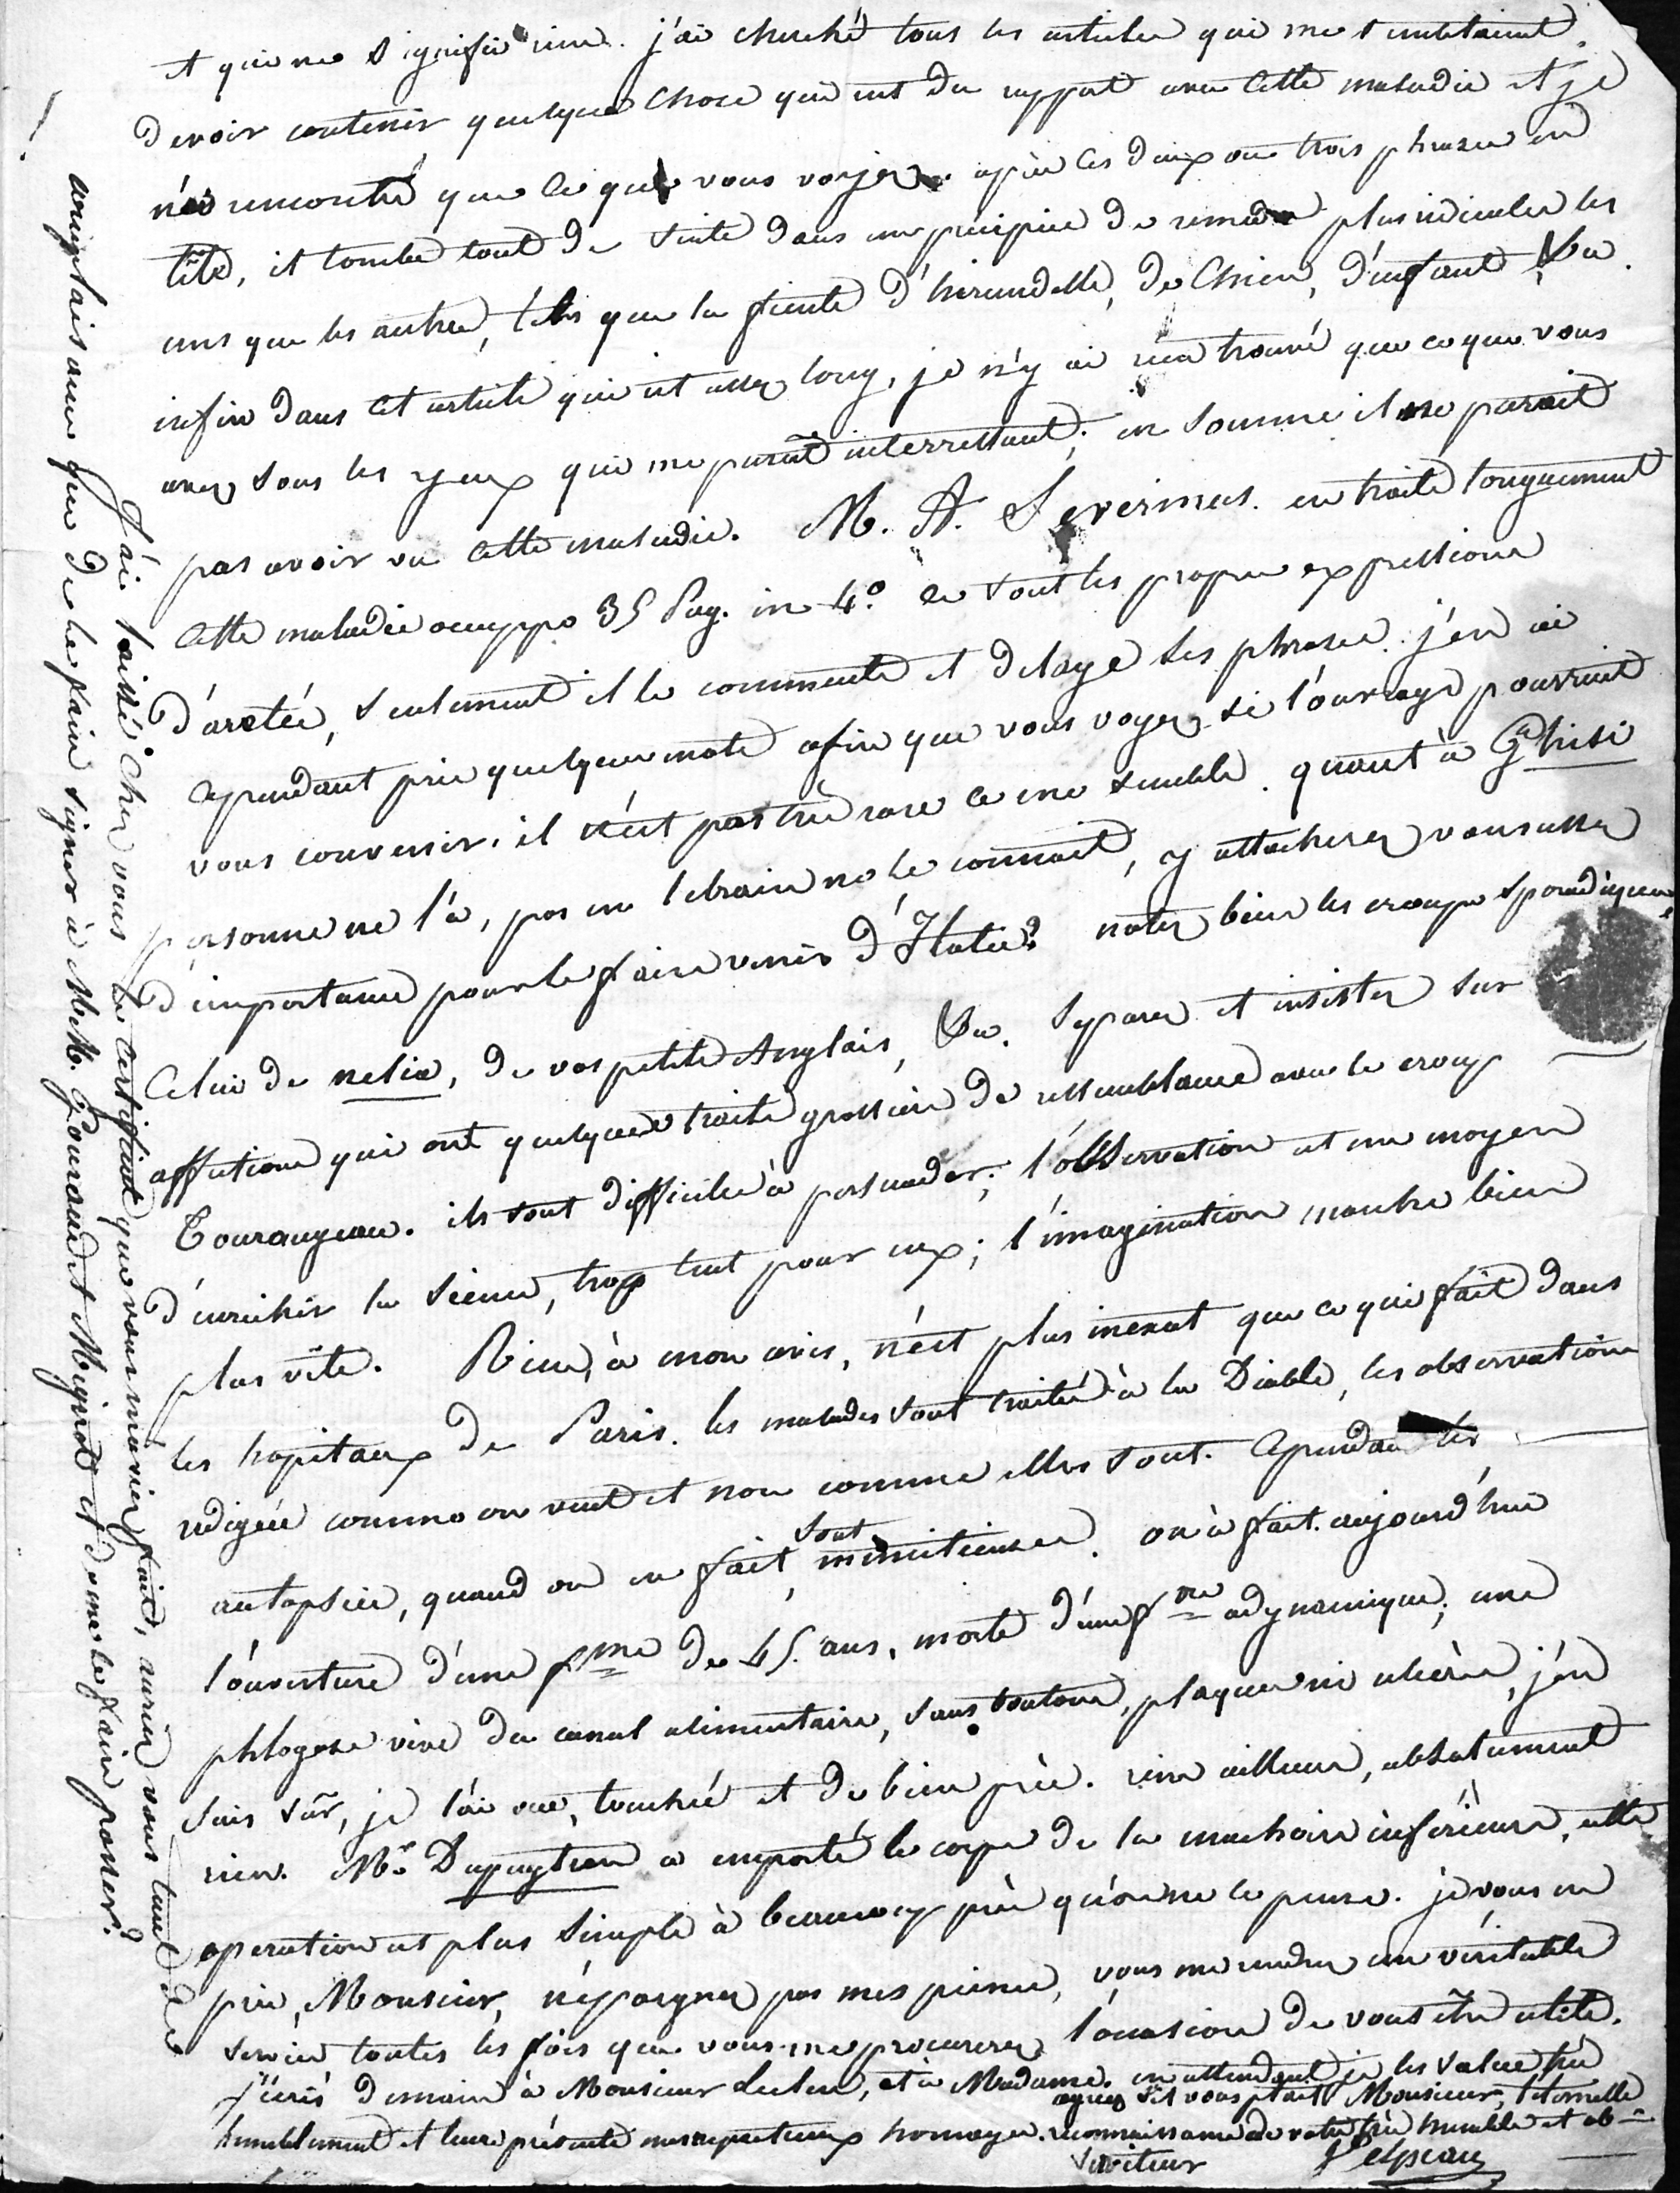 et qui ne signifie rien. j'ai cherché tous les articles qui me semblaient
devoir contenir quelque chose qui eut du rapport avec cette maladie et je
n'ai rencontré que ce que vous voyez. après ces deux ou trois phrases en
tête, il tombe tout de suite dans un precipice de remedes plus ridicules les
uns que les autres, tels que la fiente d'hirundelle, de chien, d'enfant &a.
enfin dans cet article qui est assez long, je n'y ai rien trouvé que ce que vous
avez sous les yeux qui me parut interressant; en somme il ne parait
pas avoir vu cette maladie. M. A. Severinus. en traite longuement
cette maladie occuppe 35 Pag. in 4.° ce sont les propres expressions
d'aretée, seulement il le commente et delaye ses phrases. j'en ai
cependant pris quelques mots afin que vous voyez si l'ouvrage pourrait
vous convenir. il n'est pas très rare ce me semble. quant à Ghisi
personne ne l'a, pas un libraire ne le connait, y attacherez vous assez
d'importance pour le faire venir d'Italie? notez bien les croups sporadiques,
celui de nelia, de vos petits Anglais, &a. separez et insistez sur
affections qui ont quelques traits grossiers de ressemblance avec le croup
Tourangeau. ils sont difficiles à persuader; l'observation est un moyen
d'enrichir la sience, trop lent pour eux; l'imagination marche bien
plus vîte. Rien, à mon avis, n'est plus inexact que ce qui fait dans
les hopitaux de Paris. les malades sont traités à la Diable, les observations
redigées comme on veut et non comme elles sont. Cependant les
autopsies, quand on en fait, sont minitieuses. on à fait aujourd'hui
l'ouverture d'une fme de 45. ans, morte d'une fvre adynamique; une
phlogose vive du canal alimentaire, sans boutons, plaques ni ulcères, j'en
suis sûr, je l'ai vue, touchée et de bien près. rien ailleurs, absolument
rien. Mr Dupuytren a emporté le corps de la machoire inférieure, cette
operation est plus simple à beaucoup près qu'on ne le pense. je vous en
prie, Monsieur, n'épargnez pas mes peines, vous me rendrez un véritable
service toutes les fois que vous me procurerez l'occasion de vous être utile.
j'écris demain à Monsieur Leclerc, et à Madame. en attendant je les salue très
humblement et leurs présente mes respectueux homages. agréez s'il vous plait Monsieur, l'éternelle
reconnaissance de votre très humble et ob-
serviteur Velpeau
J'ai laissé chez vous le certificat que vous m'aviez fait, auriez vous tout de
complaisance que de le faire signer à MM. Gouraud et Mignot et de me le faire passer?